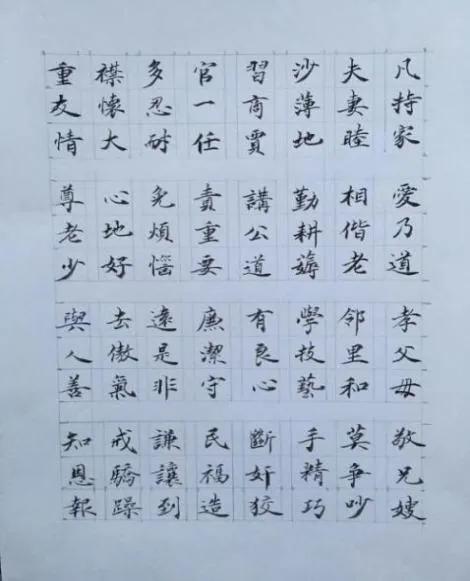 凡持家愛乃道孝父母敬兄嫂
夫妻睦相偕老邻里和莫争吵
沙薄地勤耕薅學技藝手精巧
習商賈講公道有良心斷奸狡
官一任責重要廉潔守民福造
多忍耐免煩惱遠是非謙讓到
襟懷大心地好去傲氣戒驕躁
重友情尊老少與人善知恩報